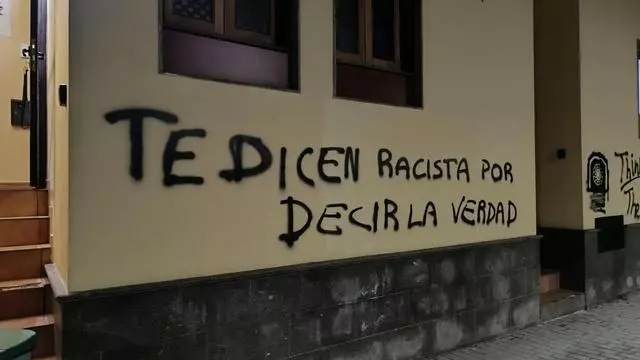 TE DICEN RACISTA POR
DECIR LA VERDAD